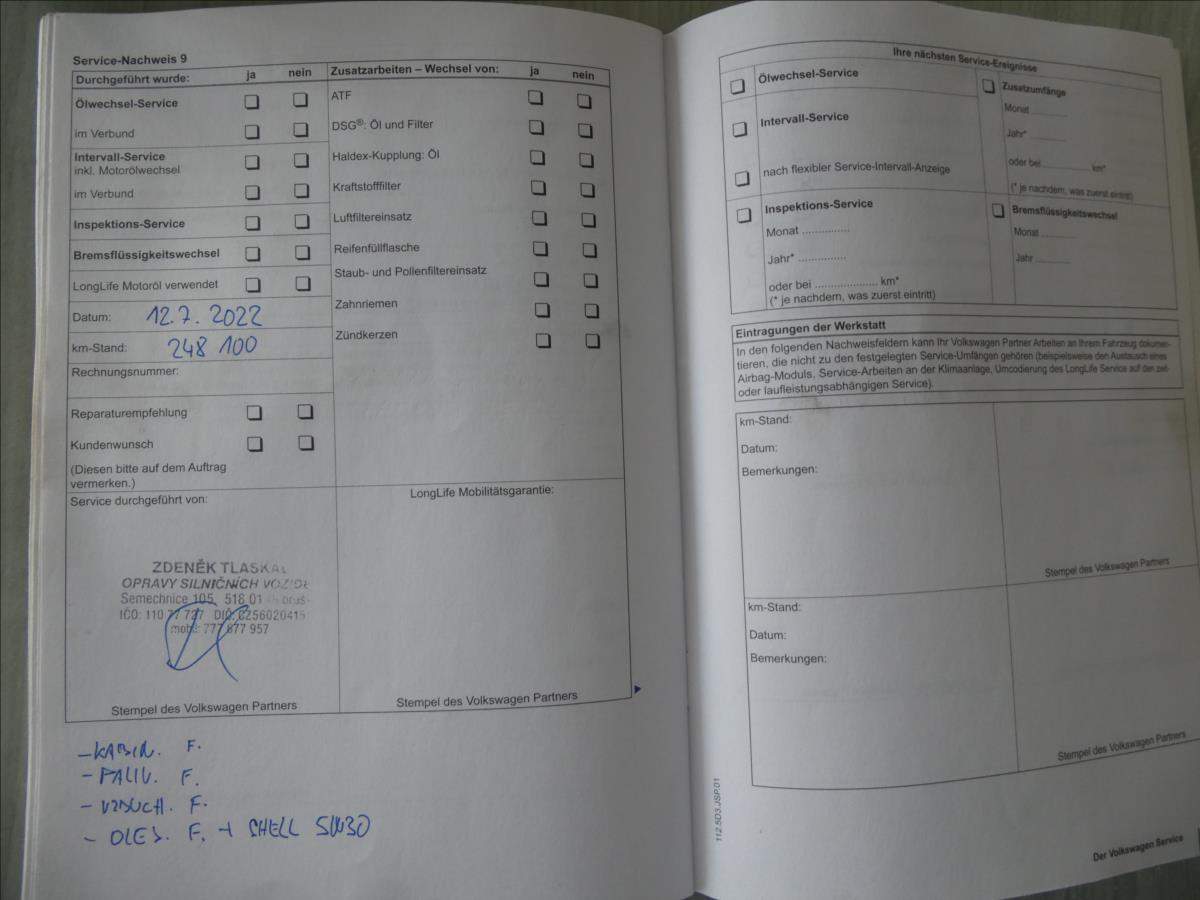 Service-Nachweis 9
Durchgeführt wurde: ja nein
Ölwechsel-Service
im Verbund
Intervall-Service
inkl. Motorölwechsel
im Verbund
Inspektions-Service
Bremsflüssigkeitswechsel
LongLife Motoröl verwendet
Datum: 12.7.2022
km-Stand: 248 100
Rechnungsnummer:
Reparaturempfehlung
Kundenwunsch
(Diesen bitte auf dem Auftrag
vermerken.)
Zusatzarbeiten – Wechsel von: ja nein
ATF
DSG®: Öl und Filter
Haldex-Kupplung: Öl
Kraftstofffilter
Luftfiltereinsatz
Reifenfüllflasche
Staub- und Pollenfiltereinsatz
Zahnriemen
Zündkerzen
Service durchgeführt von:
ZDENĚK TLASKAL
OPRAVY SILNIČNÍCH VOZIDEL
Semechnice 105, 518 01
IČO: 110 77 727 DIČ: CZ56020415
mobil: 777 677 957
Stempel des Volkswagen Partners
LongLife Mobilitätsgarantie:
Stempel des Volkswagen Partners
- KABIN. F.
- PALIV. F.
- VZDUCH. F.
- OLEJ. F. + SHELL 5W30
Ihre nächsten Service-Ereignisse
Ölwechsel-Service
Intervall-Service
nach flexibler Service-Intervall-Anzeige
Inspektions-Service
Monat ...............
Jahr* ...............
oder bei .................... km*
(* je nachdem, was zuerst eintritt)
Zusatzumfänge
Monat ............
Jahr* ............
oder bei ................ km*
(* je nachdem, was zuerst eintritt)
Bremsflüssigkeitswechsel
Monat ............
Jahr ............
Eintragungen der Werkstatt
In den folgenden Nachweisfeldern kann Ihr Volkswagen Partner Arbeiten an Ihrem Fahrzeug dokumen-
tieren, die nicht zu den festgelegten Service-Umfängen gehören (beispielsweise den Austausch eines
Airbag-Moduls, Service-Arbeiten an der Klimaanlage, Umcodierung des LongLife Service auf den zeit-
oder laufleistungsabhängigen Service).
km-Stand:
Datum:
Bemerkungen:
Stempel des Volkswagen Partners
km-Stand:
Datum:
Bemerkungen:
Stempel des Volkswagen Partners
112.5D3.JSP.01
Der Volkswagen Service